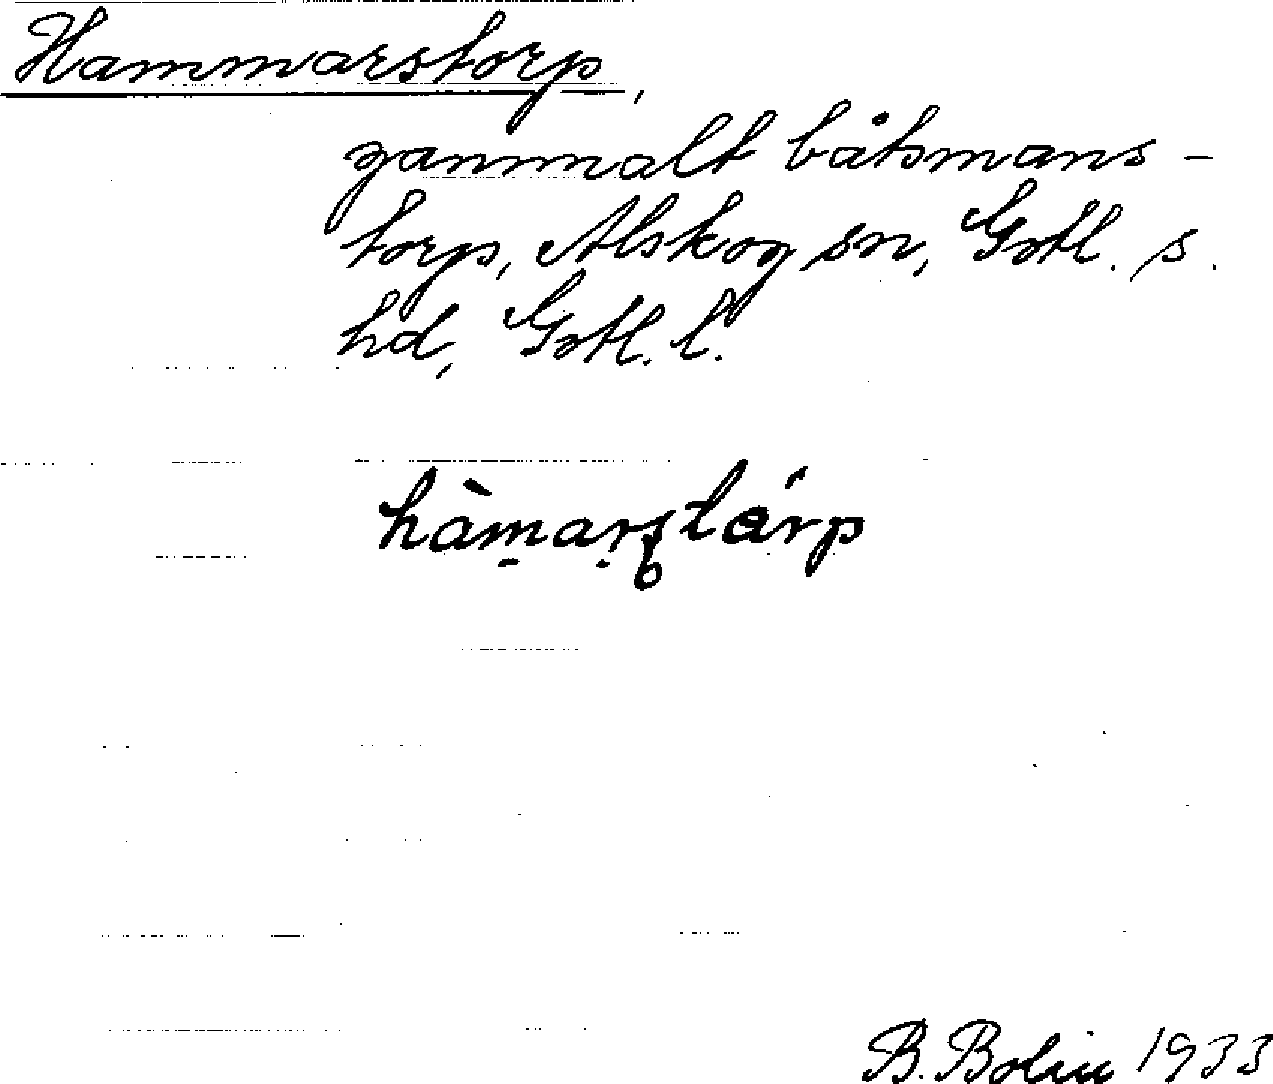 Hammarstorp,
gammalt båtsmans-
torp, Alskog sn, Gotl. s.
hd, Gotl. l.
hàmarstárp
B. Bolin 1933